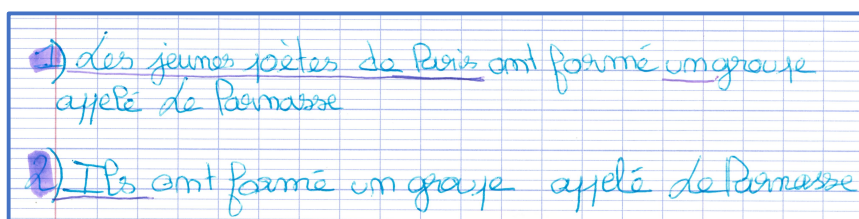 1) des jeunes poètes de Paris ont formé un groupe
appelé Le Parnasse
2) Ils ont formé un groupe appelé Le Parnasse